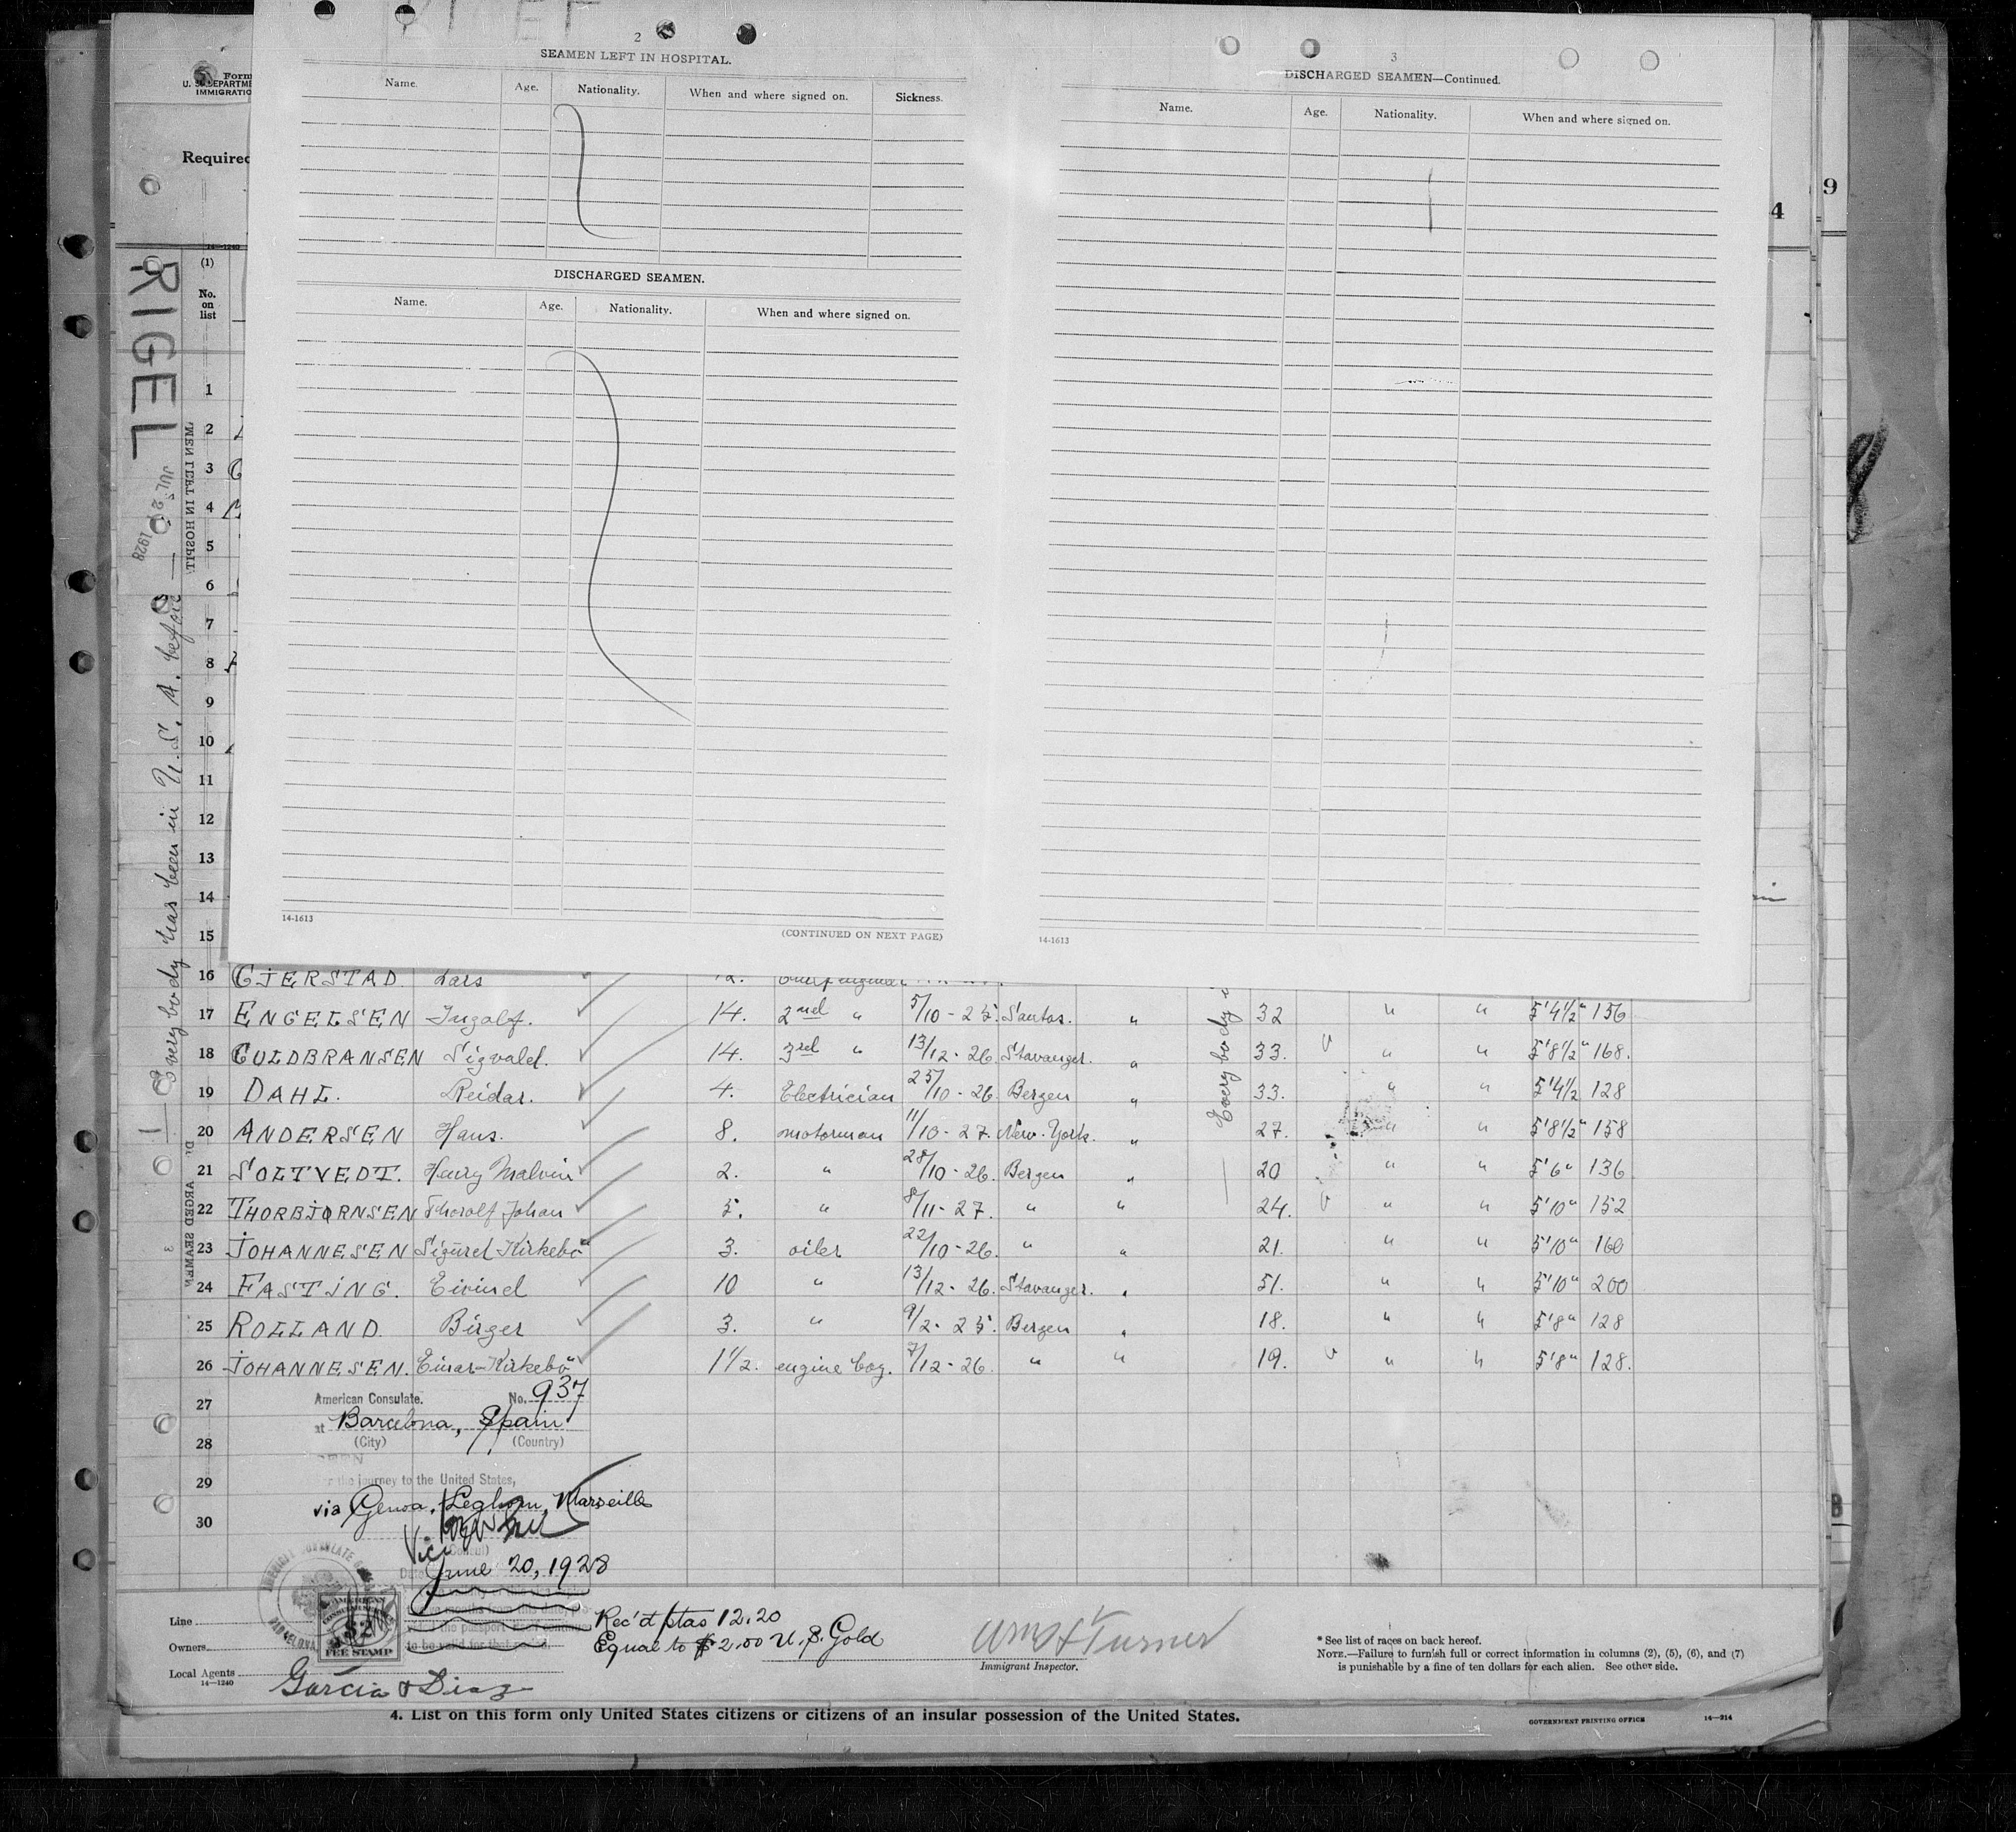 2
SEAMEN LEFT IN HOSPITAL.
Name. Age. Nationality. When and where signed on. Sickness.
DISCHARGED SEAMEN.
Name. Age. Nationality. When and where signed on.
14-1613
(CONTINUED ON NEXT PAGE)
3
DISCHARGED SEAMEN—Continued.
Name. Age. Nationality. When and where signed on.
14-1613
4
9
Form
U. S. DEPARTME
IMMIGRATIO
Required
14-1240
(1)
No. on list
RIGEL
JUL 2 1928
Everybody has been in U.S.A. before
1
2
3
4
5
6
7
8
9
10
11
12
13
14
15
16 GJERSTAD. Lars 12.
17 ENGELSEN Ingolf. 14. 2nd " 5/10-25. Santos. " 32 " " 5'4½" 156
18 GULDBRANSEN Sigvald. 14. 3rd " 13/12-26. Stavanger. " 33. " " 5'8½" 168.
19 DAHL. Reidar. 4. Electrician 25/10-26. Bergen " 33. " " 5'4½ 128
20 ANDERSEN Hans. 8. motorman 11/10-27. New-York. " 27. " " 5'8½" 158
21 SOLTVEDT. Harry Malvin 2. " 28/10-26. Bergen " 20 " " 5'6" 136
22 THORBJØRNSEN Thoralf Johan 5. " 8/11-27. " " 24. " " 5'10" 152
23 JOHANNESEN Sigurd Kirkebö 3. oiler 22/10-26. " " 21. " " 5'10" 160
24 FASTING. Eivind 10 " 13/12-26. Stavanger. " 51. " " 5'10" 200
25 ROLLAND. Birger 3. " 9/2-25. Bergen " 18. " " 5'8" 128
26 JOHANNESEN. Einar-Kirkebö 1½. engine boy. 7/12-26. " " 19. " " 5'8" 128.
Everybody
27
28
29
30
American Consulate. No. 937
at Barcelona, Spain
(City) (Country)
the journey to the United States,
via Genoa, Leghorn, Marseille
Vice
(Consul)
June 20, 1928
$2
FEE STAMP
to be valid for that period.
Rec'd ptas 12.20
Equal to $2.00 U.S. Gold
Line
Owners
Local Agents Garcia & Diaz
14-1240
Wm H Turner
Immigrant Inspector.
* See list of races on back hereof.
NOTE.—Failure to furnish full or correct information in columns (2), (5), (6), and (7)
is punishable by a fine of ten dollars for each alien. See other side.
4. List on this form only United States citizens or citizens of an insular possession of the United States.
GOVERNMENT PRINTING OFFICE 14-314